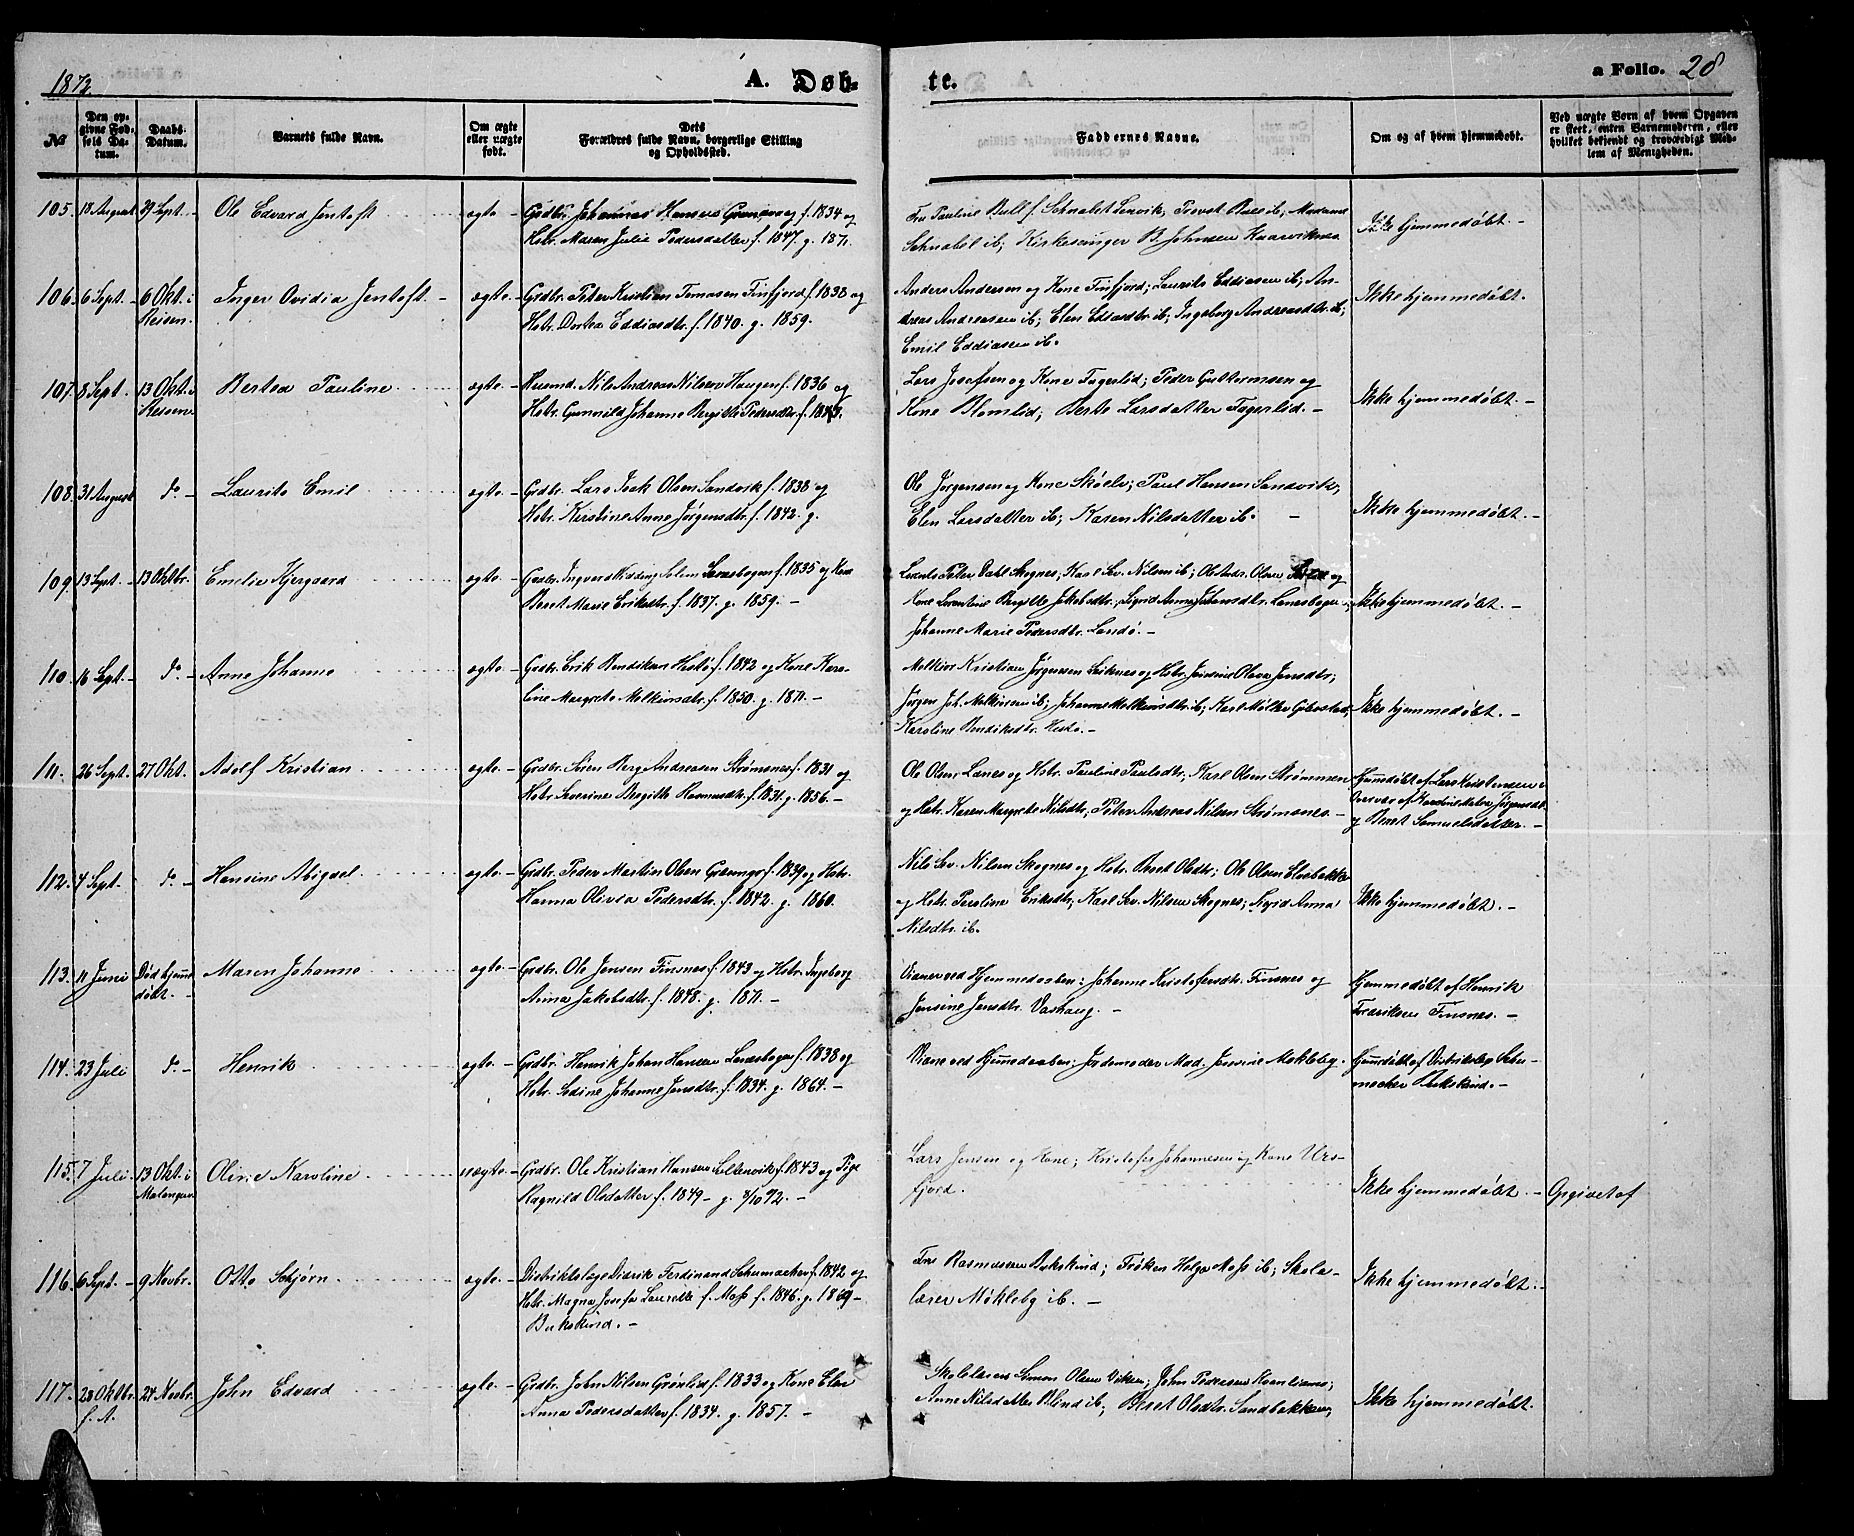 1872.
A. Døb-
te.
a Folio. 28
№
Den op-
givne Fød-
sels Da-
tum.
Daabs-
Datum.
Barnets fulde Navn.
Om ægte
eller uægte
født.
Dets
Forældres fulde Navn, borgerlige Stilling
og Opholdssted.
Faddernes Navne.
Om og af hvem hjemmedøbt.
Ved uægte Børn af hvem Opgaven
er skeet, enten Barnemoderen, eller
hvilket bekjendt og troværdigt Med-
lem af Menigheden.
105. 18 August 29 Sept. Ole Edvard Jentoft ægte Grdbr. Johannes Hansen f. 1834 og
Hstr. Maren Julie Pedersdatter f. 1847. g. 1871.
Fru Pauline Bull f. Schnabel Lenvik; Provst Bull ib; Madame
Schnabel ib; Kirkesanger B. Johnsen Kaarviknes
Ikke hjemmedøbt. -
106. 6 Sept. 6 Okt. i
Reisen. Inger Ovidia Jentoft ægte. Grdbr. Peter Kristian Tomasen Finfjord f. 1838 og
Hstr. Dortea Eddiasdtr. f. 1840. g. 1859.
Anders Andersen og Kone Finfjord; Laurits Eddiasen ib; An-
dreas Andreasen ib; Elen Eddiasdtr. ib; Ingeborg Andreasdtr. ib;
Emil Eddiassen ib.
Ikke hjemmedøbt.
107. 8 Sept. 13 Okt. i
Reisen Bertea Pauline ægte. Husmd. Nils Andreas Nilsen Haugen f. 1836 og
Hstr. Gunnild Johanne Bergitte Pedersdtr. f.
Lars Josefsen og Kone Fagerlid; Peder Guttormsen og
Kone Blomlid; Berte Larsdatter Fagerlid. -
Ikke hjemmedøbt. -
108. 31 August do - Laurits Emil ægte. Grdbr. Lars Olsen Sandvik f. 1838 og
Hstr. Kirstine Anne Jørgensdtr. f. 1842. g.
Ole Jørgensen og Kone Skøelv; Paul Hansen Sandvik;
Elen Larsdatter ib; Karen Nilsdatter ib. -
Ikke hjemmedøbt. -
109. 13 Sept. 13 Oktbr. Emelie Kjergaard ægte. Grdbr. Ingvard Kidding Solem Lanesbogen f. 1835 og Kone
Beret Marie Eriksdtr. f. 1837. g. 1859. -
Lorents Peter Dahl Skognes; Karl Sev. Nilsen ib; Ole Andr. Olsen og
Kone Lorentine Bergitte Jakobsdtr.; Sigrid Anna Johansdtr. Lanesbogen;
Johanne Marie Pedersdtr. Landø. -
Ikke hjemmedøbt. -
110. 16 Sept. do - Anne Johanne ægte. Grdbr. Erik Bendiksen Hestø f. 1842 og Kone Karo-
line Margrete Melkiorsdtr. f. 1850. g. 1871. -
Melkior Kristian Jørgensen Leiknes og Hstr. Jensine Olava Jensdtr;
Jørgen Joh. Melkiorsen ib; Johanne Melkiorsdtr. ib; Karl Møller Gibostad;
Karoline Bendiksdtr. Hestø. -
Ikke hjemmedøbt. -
111. 26 Sept. 27 Okt. Adolf Kristian ægte. Grdbr. Søren Berg Andreasen Strømsnes f. 1831 og
Hstr. Severine Bergitte Rasmusdtr. f. 1831. g. 1856. -
Ole Olsen Lanes og Hstr. Pauline Paulsdtr; Karl Olsen Strømmen
og Hstr. Karen Margrete Nilsdtr; Peter Andreas Nilsen Strømsnes. -
Hjemmedøbt af Lars Kristensen i
Overvær af Hendrikdalena Jørgensdtr.
og Beret Samuelsdatter. -
112. 4 Sept. do - Hansine Abigael ægte. Grdbr. Peder Martin Olsen f. 1839 og Hstr.
Hanna Olivia Pedersdtr. f. 1842. g. 1860.
Nils Sev. Nilsen Skognes og Hstr. Beret Olsdtr; Ole Olsen
og Hstr. Pauline Eriksdtr; Karl Sev. Nilsen Skognes; Sigrid Anna
Nilsdtr. ib.
Ikke hjemmedøbt. -
113. 11 Juni Død hjemme
døbt. - Maren Johanne ægte. Grdbr. Ole Jensen Finsnes f. 1843 og Hstr. Ingeborg
Anna Jakobsdtr. f. 1848. g. 1871. -
Vidner ved Hjemmedaaben: Johanne Kristofersdtr. Finsnes og
Jensine Jensdtr. Vashaug. -
Hjemmedøbt af Henrik
Fredriksen Finsnes. -
114. 23 Juli do - Henrik ægte. Grdbr. Henrik Johan Hansen Lanesbogen f. 1838 og
Hstr. Sedine Johanne Jensdtr. f. 1834. g. 1864. -
Vidne ved Hjemmedaaben: Jordemoder Mad. Jensine Møkleby.
Hjemmedøbt af Distriktslæge Schu-
macher Bukskind. -
115. 7 Juli 13 Okt. i
Malangen Oline Karoline uægte. Grdbr. Ole Kristian Hansen f. 1843 og Pige
Ragnild Olsdatter f. 1849 - g. 4/10 72. -
Lars Jensen og Kone; Kristofer Johannesen og Kone Urs-
fjord.
Ikke hjemmedøbt. - Opgivet af
116. 6 Sept. - 9 Novbr. Otto Schjørn ægte. Distriktslæge Didrik Ferdinand Schumacher f. 1842 og
Hstr. Magna Josefa Laurette f. Moss f. 1846. g. 1869 -
Bukskind. -
Fru Rasmussen Bukskind; Frøken Helga Moss ib; Skole-
lærer Møkleby ib. -
Ikke hjemmedøbt. -
117. 28 Oktbr.
f. A. 24 Novbr. John Edvard ægte. Grdbr. John Nilsen Grønlid f. 1833 og Kone Elen
Anna Pedersdatter f. 1834. g. 1857. -
Skolelærer Simon Olsen Viken; John Pedersen Kvanliams;
Anne Nilsdatter Øslind ib; Beret Olsdtr. Sandbakken;
Ikke hjemmedøbt.